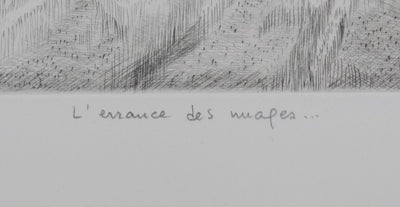 L'errance des nuages...